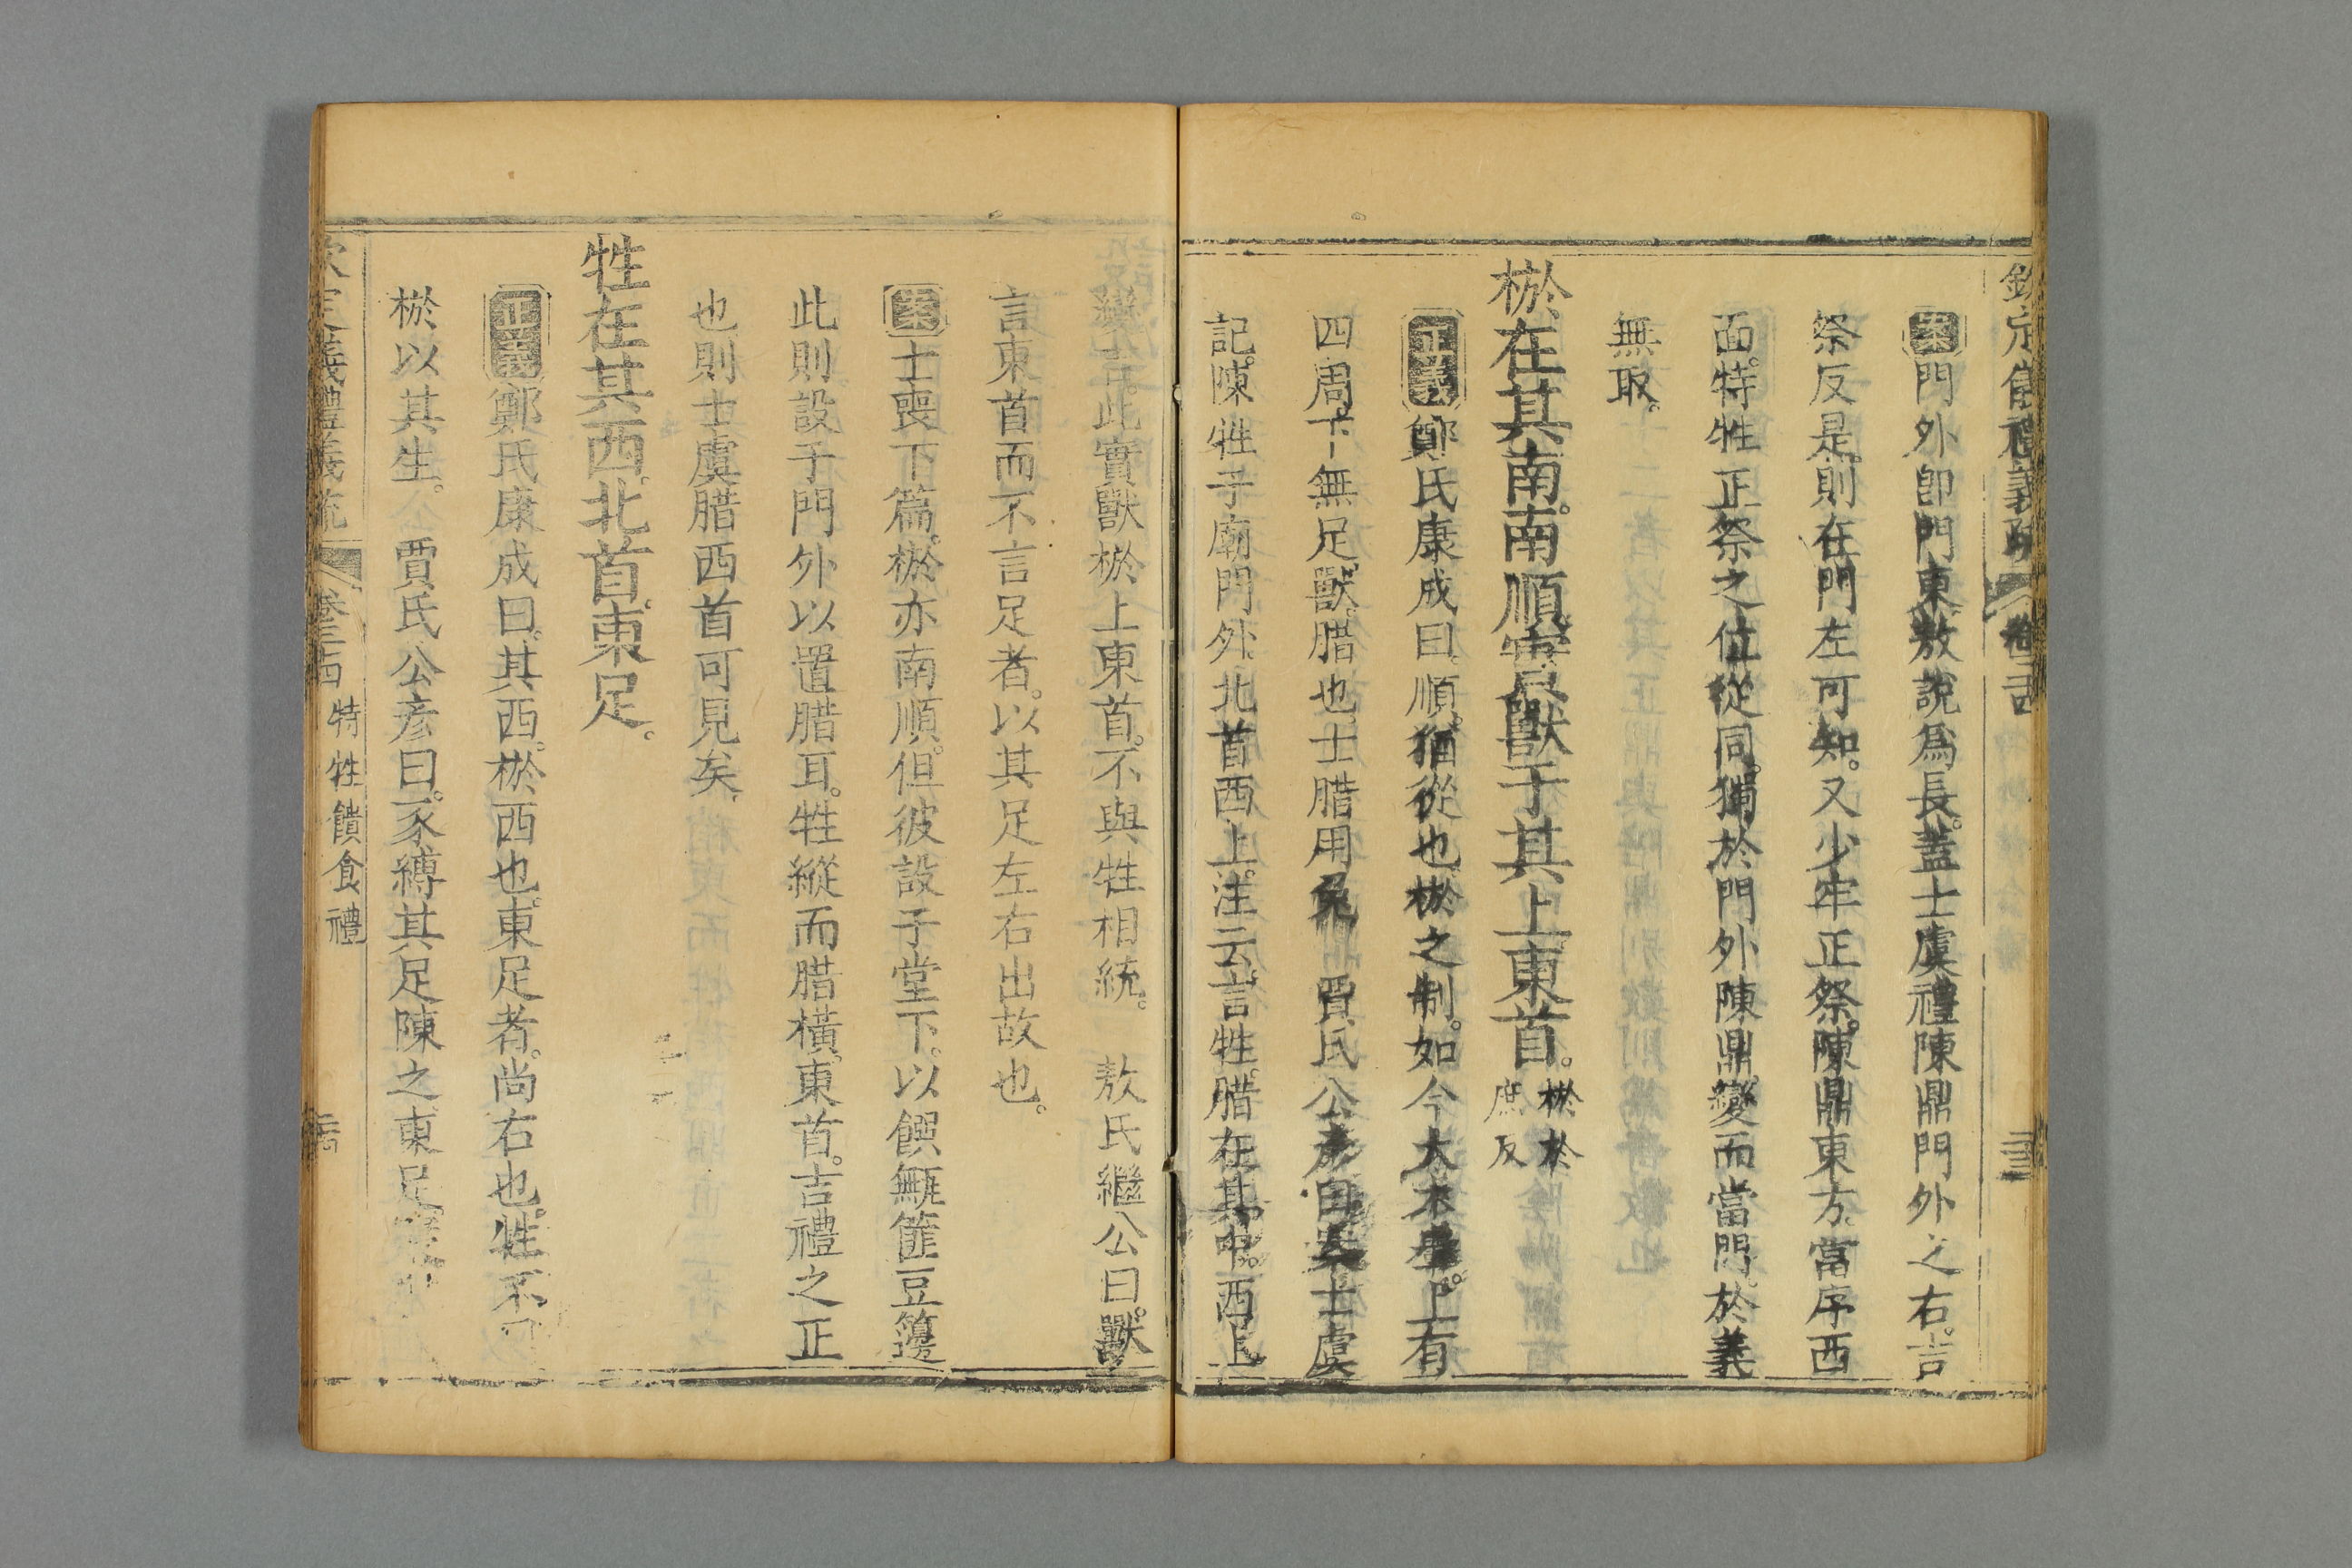 欽定儀禮義疏 卷三古
案門外卽門東敖說爲長蓋士虞禮陳鼎門外之右吉
祭反是則在門左可知又少牢正祭陳鼎東方當序西
面特牲正祭之位從同獨於門外陳鼎變而當門於義
無取
棜在其南南順實獸于其上東首棜於
庶反
正義鄭氏康成曰順猶從也棜之制如今大木轝上有
四周下無足獸腊也士腊用兔 賈氏公彥曰案士虞
記陳牲于廟門外北首西上注云言牲腊在其中西上
變吉此實獸棜上東首不與牲相統 敖氏繼公曰獸
言東首而不言足者以其足左右出故也
案士喪下篇棜亦南順但彼設于堂下以饌甒篚豆籩
此則設于門外以置腊耳牲縱而腊橫東首吉禮之正
也則士虞腊西首可見矣
牲在其西北首東足
正義鄭氏康成曰其西棜西也東足者尚右也牲不
棜以其生 賈氏公彥曰豕縛其足陳之東足
特牲饋食禮